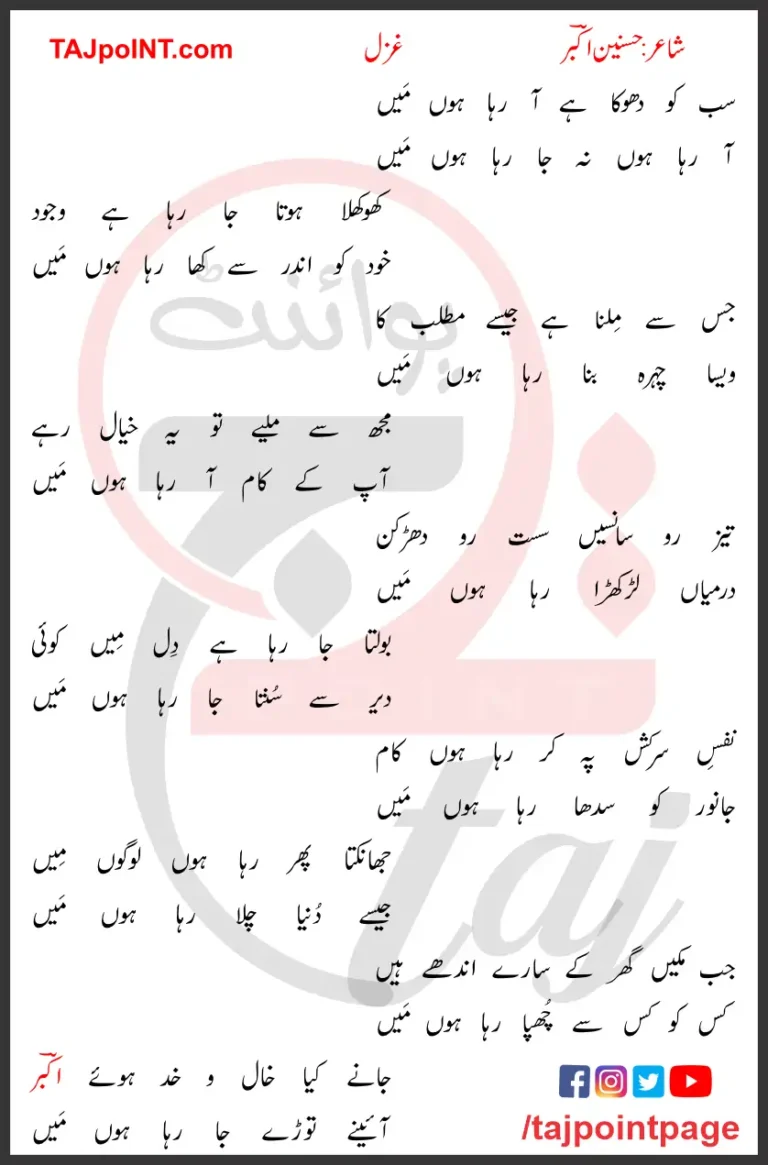 شاعر: حسنین اکبرؔ غزل TAJpoINT.com
سب کو دھوکا ہے آ رہا ہوں مَیں
آ رہا ہوں نہ جا رہا ہوں مَیں
کھوکھلا ہوتا جا رہا ہے وجود
خود کو اندر سے کھا رہا ہوں مَیں
جس سے مِلنا ہے جیسے مطلب کا
ویسا چہرہ بنا رہا ہوں مَیں
مجھ سے ملیے تو یہ خیال رہے
آپ کے کام آ رہا ہوں مَیں
تیز رو سانسیں سست رو دھڑکن
درمیاں لڑکھڑا رہا ہوں مَیں
بولتا جا رہا ہے دِل مِیں کوئی
دیر سے سُنتا جا رہا ہوں مَیں
نفسِ سرکش پہ کر رہا ہوں کام
جانور کو سدھا رہا ہوں مَیں
جھانکتا پھر رہا ہوں لوگوں مِیں
جیسے دُنیا چلا رہا ہوں مَیں
جب مکیں گھر کے سارے اندھے ہیں
کس کو کس سے چُھپا رہا ہوں مَیں
جانے کیا خال و خد ہوئے اکبرؔ
آئینے توڑے جا رہا ہوں مَیں
/tajpointpage
تاج پوائنٹ
POINT
taj